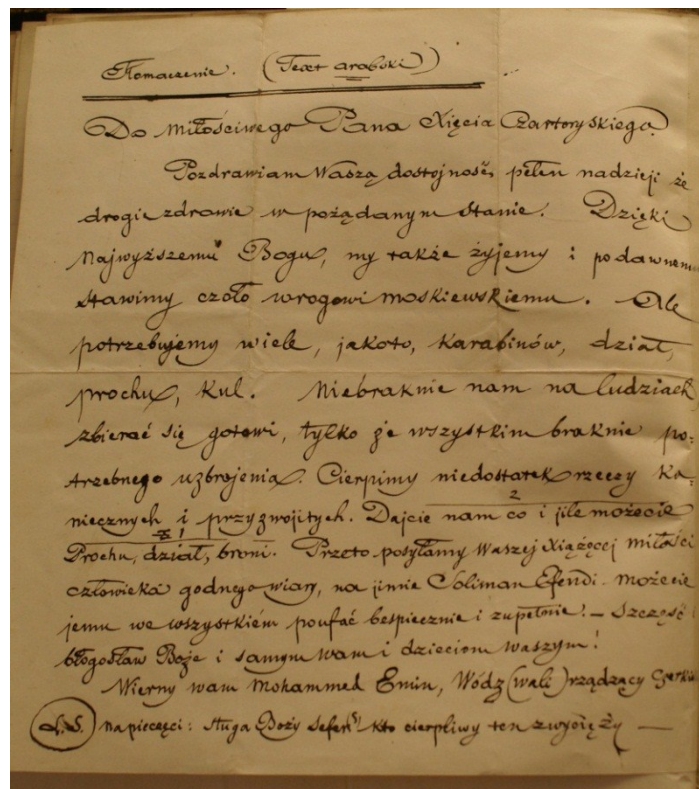 Tłomaczenie. (Text arabski)
Do Miłościwego Pana Xięcia Czartoryskiego.
Pozdrawiam Waszą dostojność, pełen nadzieji że
drogie zdrowie w pożądanym stanie. Dzięki
Najwyższemu Bogu, my także żyjemy i podawnem
stawimy czoło wrogowi moskiewskiemu. Ale
potrzebujemy wiele, jakoto, karabinów, dział,
prochu, kul. Niebraknie nam na ludziach
zbierać się gotowi, tylko że wszystkim braknie po-
trzebnego uzbrojenia. Cierpimy niedostatek rzeczy ko-
niecznych i przyzwojitych. Dajcie nam co i jile możecie
Prochu, dział, broni. Przeto posyłamy Waszej Xiążęcej miłości
człowieka godnego wiary, na jinnie Soliman Efendi. możecie
jemu we wszystkiém poufać bespiecznie i zupełnie! — Szczęść i
błogosław Boże i samym wam i dzieciom waszym!
Wierny wam Mohammed Emin, Wódz (wali) rządzący
L.S. na pieczęci: sługa Boży Kto cierpliwy ten zwycięży —